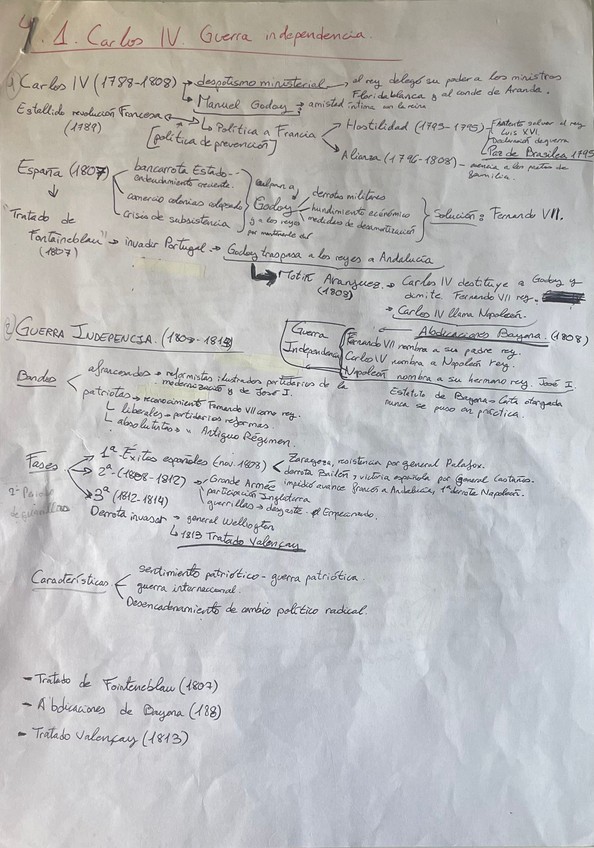 4.1. Carlos IV. Guerra independencia.
1) Carlos IV (1788-1808) → despotismo ministerial → el rey delegó su poder a los ministros
Floridablanca y al conde de Aranda.
→ Manuel Godoy → amistad íntima con la reina
Estallido revolución Francesa
(1789)
↳ Política a Francia
[política de prevención]
Hostilidad (1793-1795)
Intento salvar el rey
Luis XVI.
Declaración guerra
Paz de Basilea 1795
Alianza (1796-1808)
familia.
España (1807)
bancarrota Estado
endeudamiento creciente.
comercio colonias colapsado
crisis de subsistencia
culpan a
Godoy
y a los reyes
por mantenerle
derrotas militares
hundimiento económico
medidas de desamortización
Solución: Fernando VII.
"Tratado de
Fontainebleau" → invadir Portugal → Godoy traspasa a los reyes a Andalucía
(1807)
Motín Aranjuez → Carlos IV destituye a Godoy y
(1808)
dimite Fernando VII rey.
→ Carlos IV llama Napoleón.
Abdicaciones Bayona (1808)
2) GUERRA INDEPENCIA. (1808-1813)
Guerra
Independencia
Fernando VII nombra a su padre rey.
Carlos IV nombra a Napoleón rey.
Napoleón nombra a su hermano rey. José I.
Estatuto de Bayona - Carta otorgada
nunca se puso en práctica.
Bandos
afrancesados → reformistas ilustrados partidarios de la
modernización y de José I.
patriotas → reconocimiento Fernando VII como rey.
↳ liberales → partidarios reformas.
↳ absolutistas → Antiguo Régimen.
Fases
1ª Éxitos españoles (nov. 1808)
Zaragoza, resistencia por general Palafox.
derrota Bailén → victoria española por general Castaños.
impidió avance francés a Andalucía, 1ª derrote Napoleón.
2ª - (1808-1812) → Grande Armée
participación Inglaterra
guerrillas → desgaste - el Empecinado.
3ª (1812-1814)
2ª
de guerrillas
Derrota invasor → general Wellington
↳ 1813 Tratado Valençay
Características
sentimiento patriótico - guerra patriótica.
guerra internacional.
Desencadenamiento de cambio político radical.
- Tratado de Fointeneblau (1807)
- Abdicaciones de Bayona (188)
- Tratado Valençay (1813)